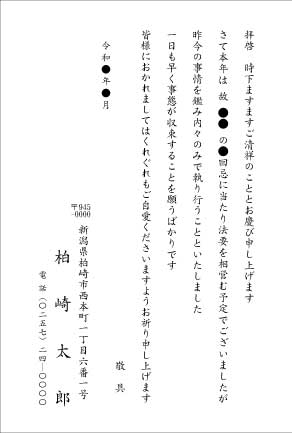 拝啓　時下ますますご清祥のこととお慶び申し上げます
さて本年は 故 ●● の●回忌に当たり法要を相営む予定でございましたが
昨今の事情を鑑み内々のみで執り行うことといたしました
一日も早く事態が収束することを願うばかりです
皆様におかれましてはくれぐれもご自愛くださいますようお祈り申し上げます
敬具
令和●年●月
〒945-0000
新潟県柏崎市西本町一丁目六番一号
柏崎太郎
電話（〇二五七）二四―〇〇〇〇